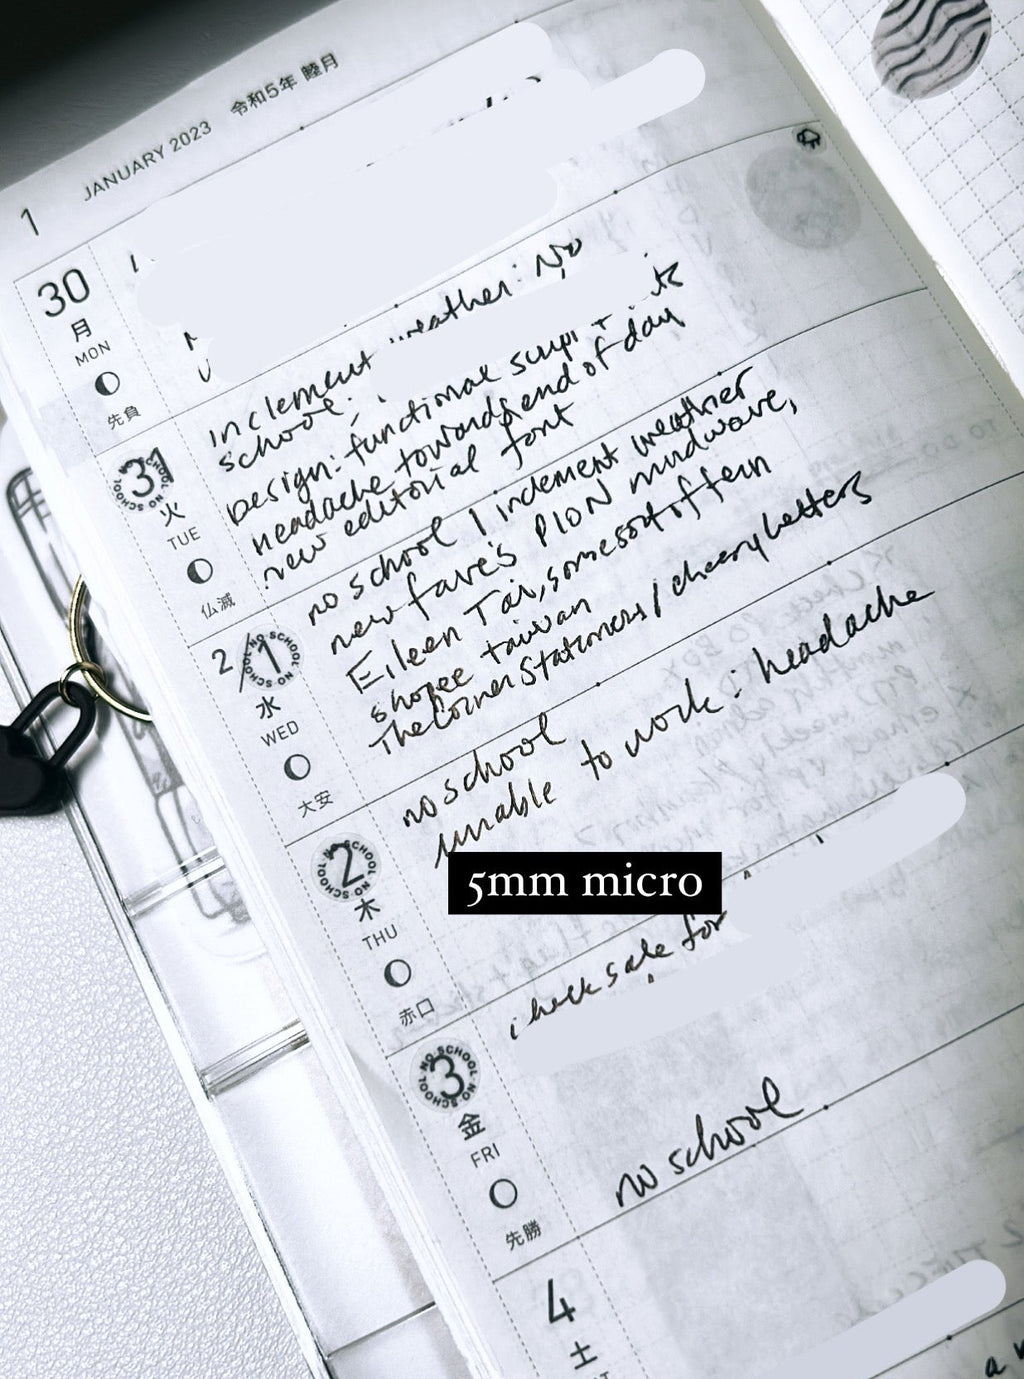 1 JANUARY 2023 令和5年 睦月
30
月
MON
先負
inclement weather: No
school
31
NO SCHOOL NO SCHOOL
火
TUE
仏滅
Design: functional script
headache towards end of day
new editorial font
2/1
NO SCHOOL NO SCHOOL
水
WED
大安
no school / inclement weather
new fave's PION mudwave,
Eileen Tai, some sort of fern
shopee taiwan
The Corner Stationers / cheery letters
2
NO SCHOOL NO SCHOOL
木
THU
赤口
no school
unable to work: headache
5mm micro
3
NO SCHOOL NO SCHOOL
金
FRI
先勝
check sale for
no school
4
土
TO DO